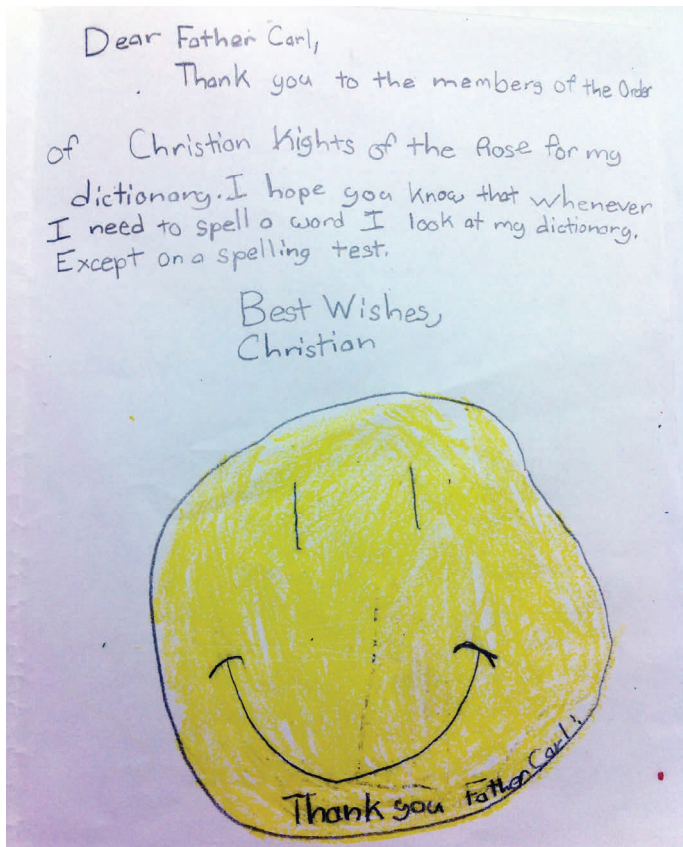 Dear Father Carl,
Thank you to the members of the Order
of Christian Kights of the Rose for my
dictionary. I hope you know that whenever
I need to spell a word I look at my dictionary.
Except on a spelling test.
Best Wishes,
Christian
Thank you Father Carl!